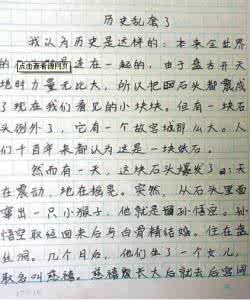 历史乱套了
我认为历史是这样的:本来全世界
的 点击查看搜网页 是连在一起的,由于盘古开天
地时力量无比大,所以把石头都震成
了现在我们看见的小块块。但有一块石
头例外了,它有一个故宫城那么大。人
们千百年来都认为这是一块妖石。
然而有一天,这块石头爆发了:天
在震动,地在摇晃。突然,从石头里面
窜出一只小猴子,他就是孙悟空。孙
悟空取经回来后与白骨精结婚。住在盘
丝洞。几个月后,他们生了一个女儿,
取名叫慈禧。慈禧长大后就去后宫闯